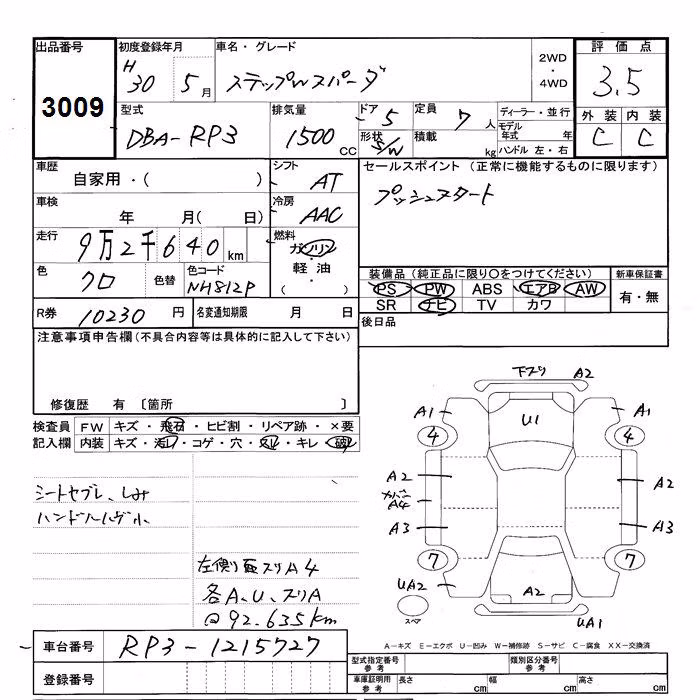 出品番号 初度登録年月 車名・グレード 2WD・4WD 評価点
3009 H30 5月 ステップWスパーダ 3.5
型式 排気量 ドア 5 定員 7人 ディーラー・並行 外装 内装
DBA-RP3 1500 CC 形状 S/W 積載 kg モデル年式 年 ハンドル 左・右 C C
車歴 シフト セールスポイント（正常に機能するものに限ります）
自家用・( ) AT プッシュスタート
車検 年 月( 日) 冷房 AAC
走行 9万2千640km 燃料 ガソリン
軽油
( ・ )
色 クロ 色替 色コード NH812P
装備品（純正品に限り○をつけてください） 新車保証書
PS PW ABS エアB AW 有・無
SR ナビ TV カワ
R券 10230円 名変通知期限 月 日 後日品
注意事項申告欄(不具合内容等は具体的に記入して下さい)
修復歴 有〔箇所 〕
検査員 FW キズ・飛石・ヒビ割・リペア跡・×要
記入欄 内装 キズ・汚れ・コゲ・穴・スレ・キレ・破レ
シートヤブレ、しみ
左側面スリA4
各A、U、スリA
@92.635km
下スリ A2
A1 U1 A1
4 4
A2 A2
A4
A3 A3
7 7
UA2 A2
スペア UA1
A-キズ E-エクボ U-凹み W-補修跡 S-サビ C-腐食 XX-交換済
車台番号 RP3-1215727
登録番号
型式指定番号 参考 類別区分番号 参考
車庫証明用 参考 長さ cm 幅 cm 高さ cm